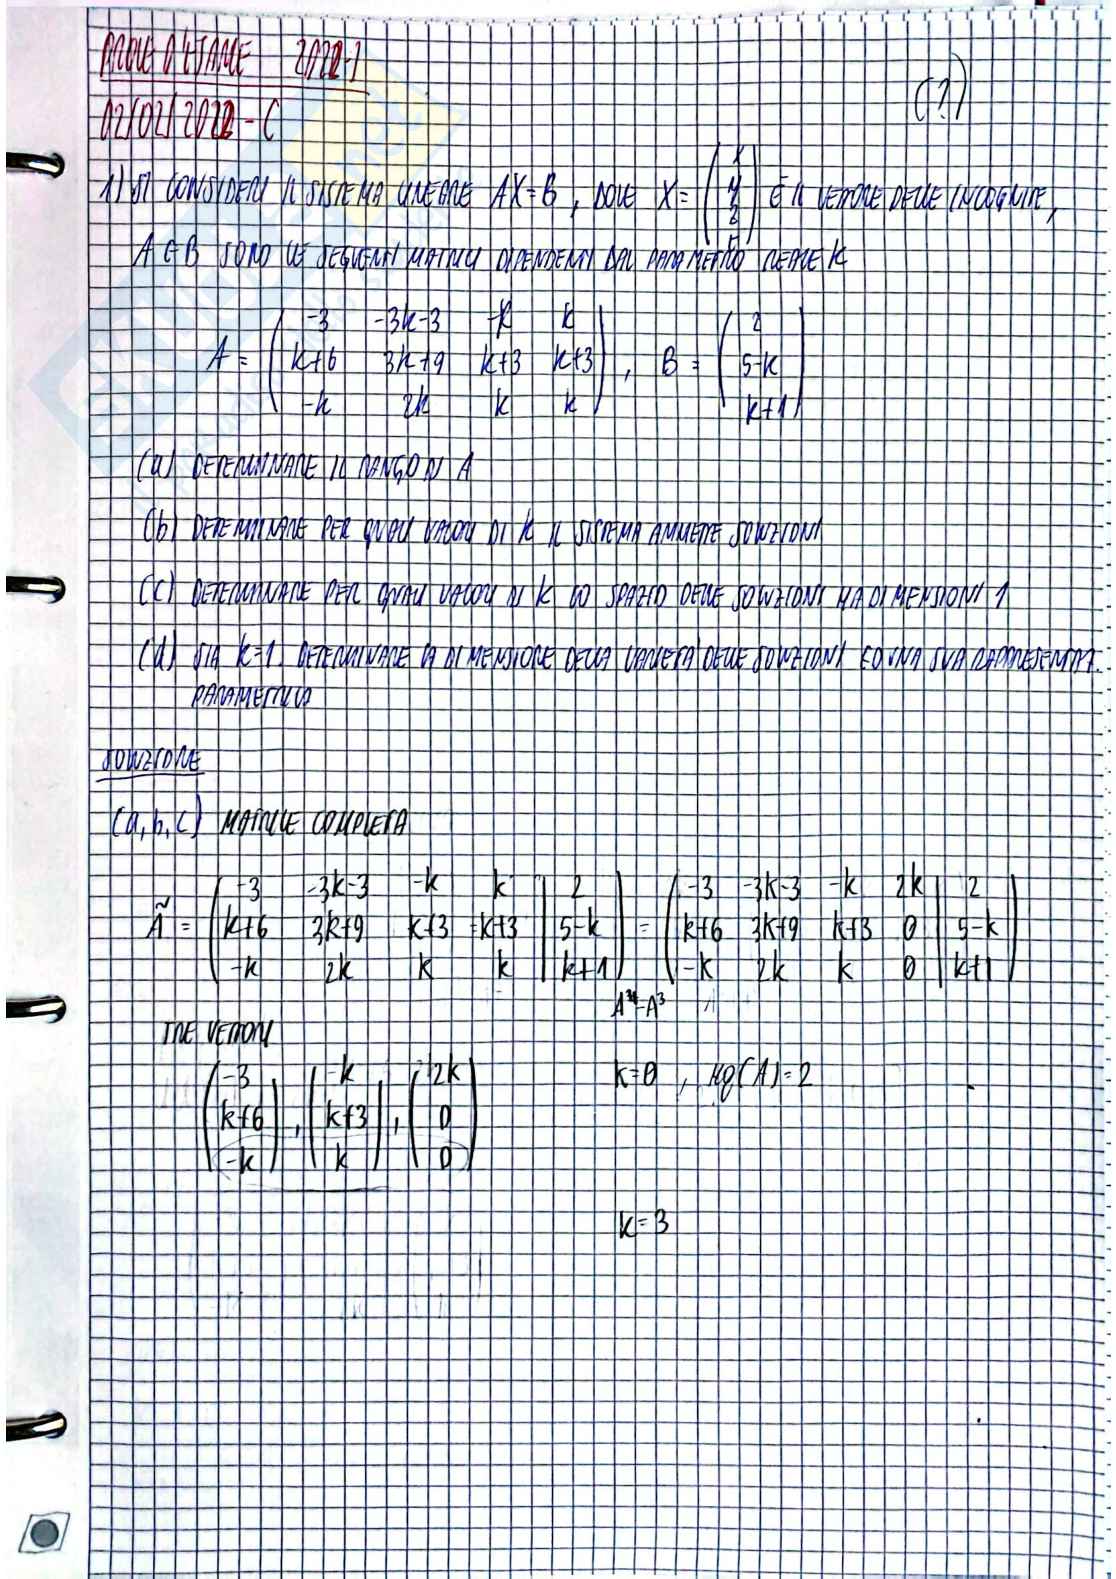 PROVE D'ESAME 2022-1
02/02/2022 - C
(?)
1) SI CONSIDERI IL SISTEMA LINEARE AX=B, DOVE X = (x y z t) È IL VETTORE DELLE INCOGNITE,
A E B SONO LE SEGUENTI MATRICI DIPENDENTI DAL PARAMETRO REALE K
A = ( -3 -3k-3 -k k
k+6 3k+9 k+3 k+3
-k 2k k k ) , B = ( 2
5-k
k+1 )
(a) DETERMINARE IL RANGO DI A
(b) DETERMINARE PER QUALI VALORI DI K IL SISTEMA AMMETTE SOLUZIONI
(c) DETERMINARE PER QUALI VALORI DI K LO SPAZIO DELLE SOLUZIONI HA DIMENSIONI 1
(d) SIA k=1. DETERMINARE LA DIMENSIONE DELLA VARIETÀ DELLE SOLUZIONI ED UNA SUA RAPPRESENTAZ.
PARAMETRICA
SOLUZIONE
(a,b,c) MATRICE COMPLETA
Ã = ( -3 -3k-3 -k k | 2 ) = ( -3 -3k-3 -k 2k | 2 )
( k+6 3k+9 k+3 k+3 | 5-k ) ( k+6 3k+9 k+3 0 | 5-k )
( -k 2k k k | k+1 ) ( -k 2k k 0 | k+1 )
A⁴-A³
TRE VETTORI
( -3 ) ( -k ) ( 2k ) k=0 , rg(A)=2
( k+6 ) , ( k+3 ) , ( 0 )
( -k ) ( k ) ( 0 )
k=3